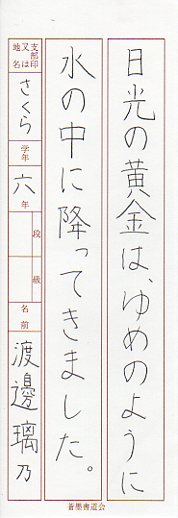 日光の黄金は、ゆめのように
水の中に降ってきました。
支部印又は地名 さくら 学年 六年 段 級 名前 渡邊璃乃
蒼墨書道会